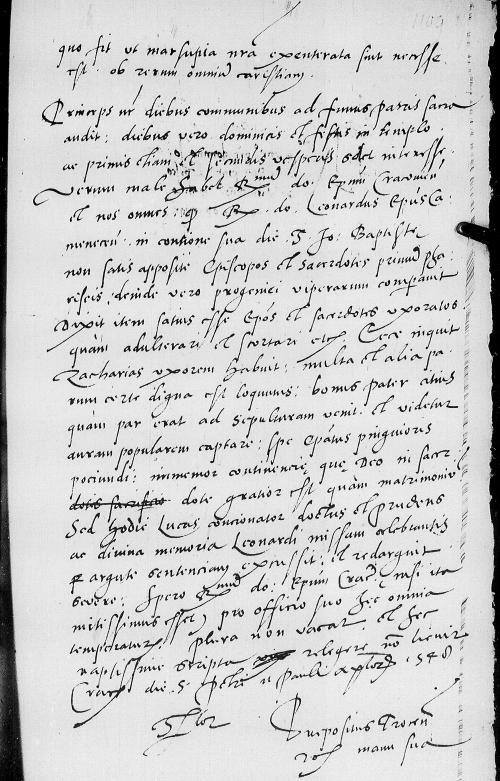 quo fit ut marsupia nra exenterata sint necesse
est ob rerum omniu carestiam.
Princeps nr diebus communibus ad funus patris sacra
audit: diebus vero dominicis et festis in templo
ac primis etiam et secundis vesperis solet interesse.
Verum male habet Rmum do. Epum Cracovien
et nos omnes: q R. do. Leonardus Epus Ca
menecen: in contione sua die S. Jo: Baptiste
non satis apposite Episcopos et sacerdotes primum pha
riseis, deinde vero progeniei viperarum comparavit
Dixit item satius esse Epos et sacerdotes uxoratos
quam adulterari et scortari etc. Ecce inquit
Zacharias uxorem habuit: multa et alia pa
rum certe digna est loquutus: bonus pater citius
quam par erat ad sepulturam venit et videtur
auram popularem captare: spe Epatus pinguioris
pociundi: inmemor continencie que Deo in sacer
dotis sacrificio dote gratior est quam matrimonium
Sed hodie Lucas concionator doctus et prudens
ac divina memoria Leonardi missam celebrantis
argute sentenciam excussit: et redarguit
severe: spero Rmum do: Epum Crac. nisi ita
mitissimus esset pro officio suo hec omnia
temperatur. Plura non vacat et hec
raptissime scripta relegere no licuit
Crac. die S. Petri et Pauli Aplor 1548
Prepositus
manu sua